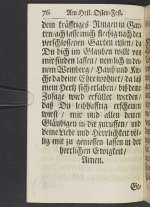 76 Am Heil. Oster-Fest.
dem kräfftigen Ruffen in Gar-
ten: ach lasse mich fleißig nach den
verschlossenen Garten eilen / da
Du dich im Glauben willst von
mir finden lassen / nemlich in dei-
nem Weinberg / Hauß und Kir-
che da deine Ehre wohnet / da ist
mein Hertz sich erlaben / biß deine
Zusage wird erfüllet werden /
daß Du leibhafftig erscheinen
wirst / mir und allen denen
Gläubigen in dir zuruffen / und
deine Liebe und Herrlichkeit völ-
lig mit zu geniessen lassen in der
herrlichen Ewigkeit /
Amen.